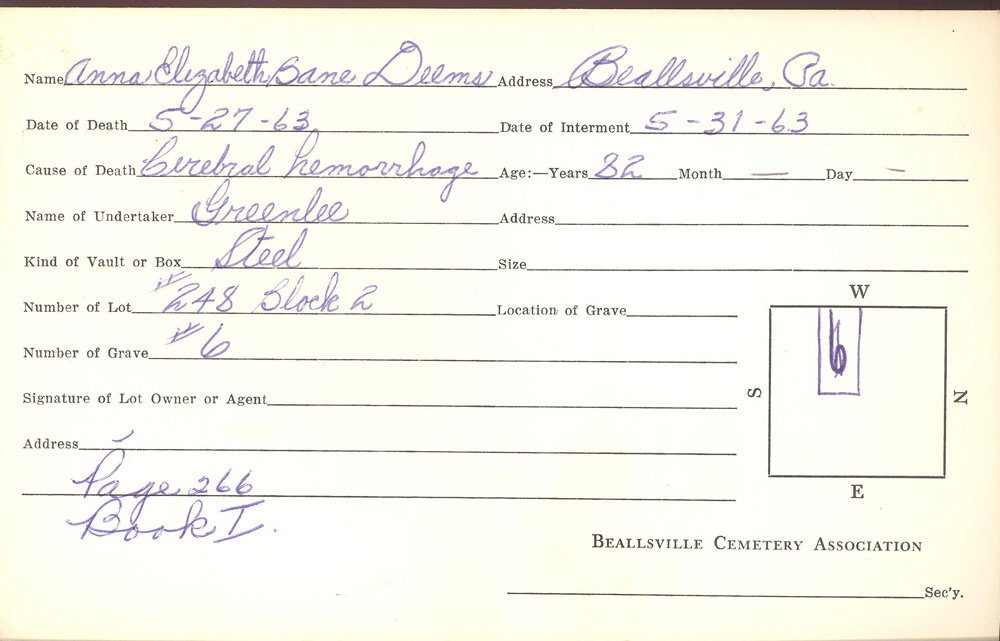 Name Anna Elizabeth Bane Deems Address Beallsville, Pa.
Date of Death 5-27-63 Date of Interment 5-31-63
Cause of Death Cerebral hemorrhage Age:—Years 82 Month — Day —
Name of Undertaker Greenlee Address
Kind of Vault or Box Steel Size
Number of Lot #248 Block 2 Location of Grave
Number of Grave #6
Signature of Lot Owner or Agent
Address
Page 266
Book I.
W
6
S
N
E
BEALLSVILLE CEMETERY ASSOCIATION
Sec'y.